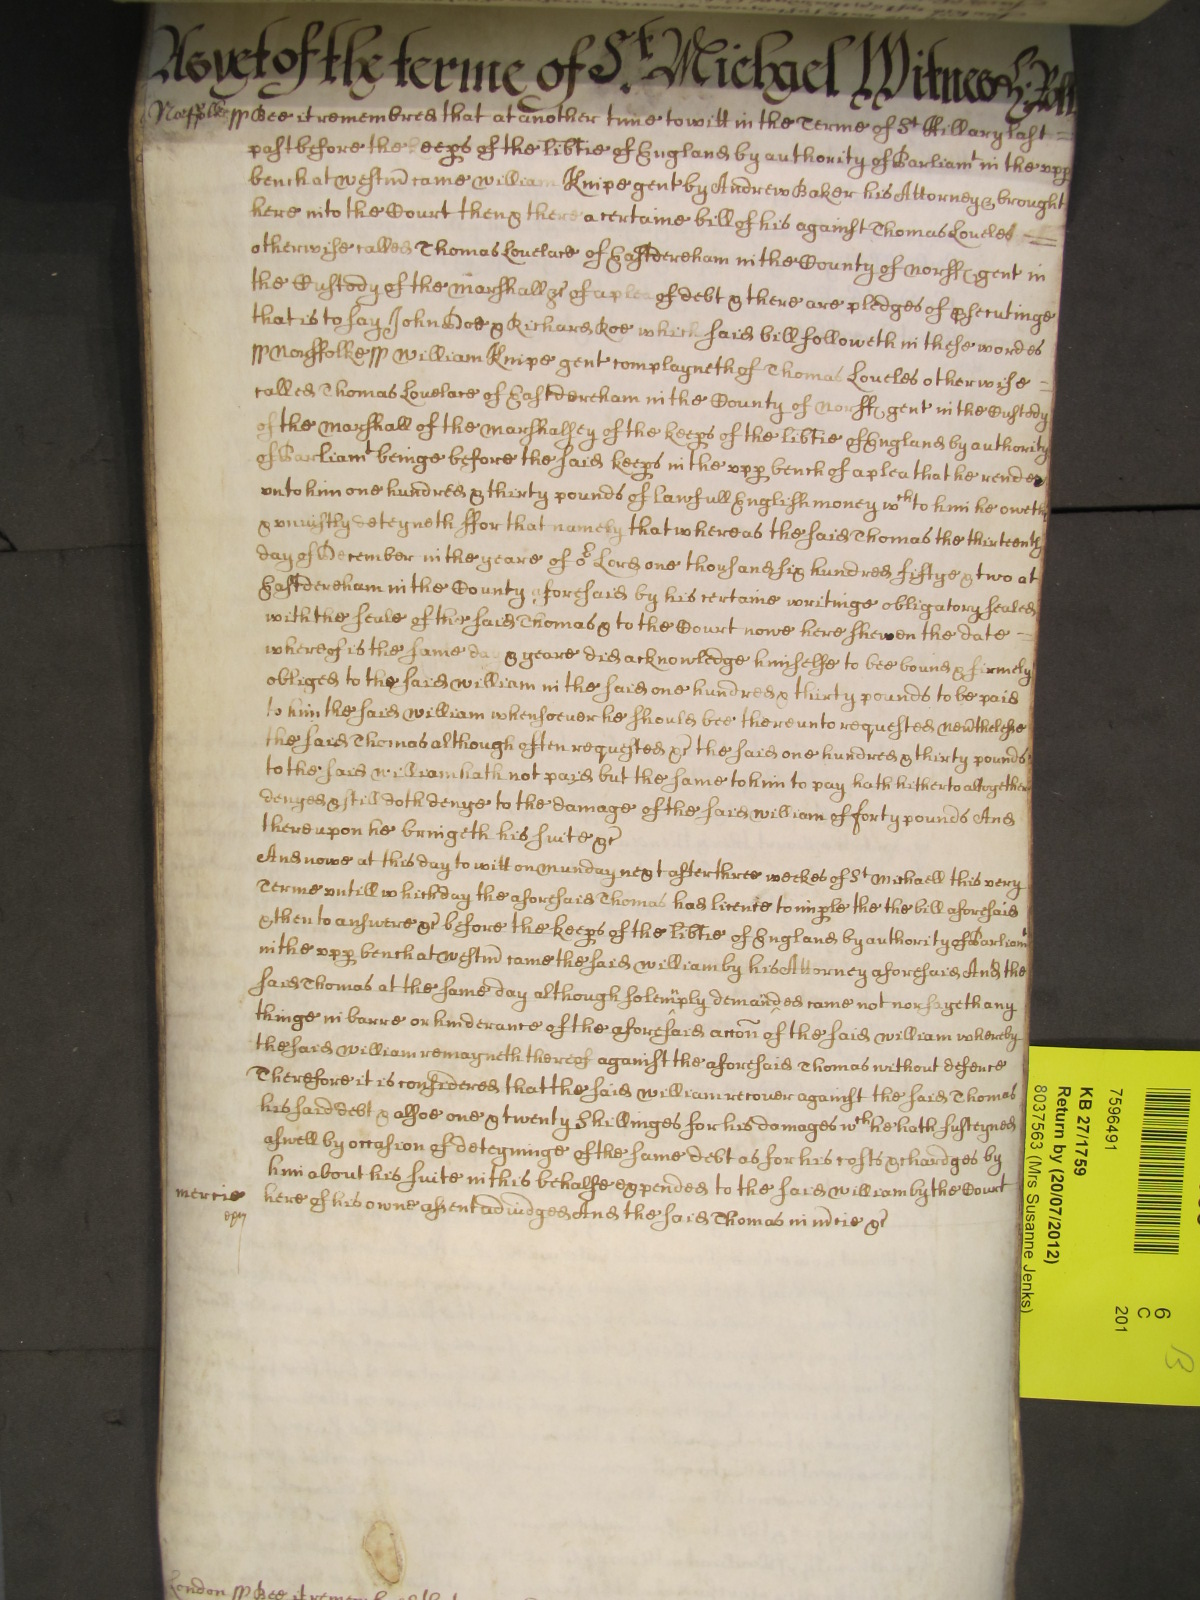 As yet of the terme of St. Michael Witnes H: Roll
Norffolke ss Bee it remembred that at another time to witt in the Terme of St Hillary last
past before the keeps of the libtie of England by authority of Parliamt in the upp
bench at Westm came William Knipe gent by Andrew Baker his Attorney & brought
here into the Court then & there a certaine bill of his against Thomas Loveles
otherwise called Thomas Lovelace of Eastdereham in the County of Norff gent in
the Custody of the marshall &c of a plea of debt & there are pledges of psecutinge
that is to say John Doe & Richard Roe which said bill followeth in these wordes
ss Norffolke ss William Knipe gent complayneth of Thomas Loveles otherwise
called Thomas Lovelace of Eastdereham in the County of Norff gent in the Custody
of the marshall of the marshalsey of the keeps of the libtie of England by authority
of Parliamt beinge before the said keeps in the upp bench of a plea that he render
unto him one hundred & thirty pounds of lawfull English money wch to him he oweth
& uniustly deteyneth ffor that namely that whereas the said Thomas the thirteenth
day of December in the yeare of or Lord one thousand six hundred fiftye & two at
Eastdereham in the County aforesaid by his certaine writinge obligatory sealed
with the seale of the said Thomas & to the Court nowe here shewen the date
whereof is the same day & yeare did acknowledge himselfe to bee bound & firmely
obliged to the said William in the said one hundred & thirty pounds to be paid
to him the said William whensoever he should bee thereunto requested nevthelesse
the said Thomas although often requested &c the said one hundred & thirty pounds
to the said William hath not paid but the same to him to pay hath hitherto altogether
denyed & still doth denye to the damage of the said William of forty pounds And
thereupon he bringeth his suite &c
And nowe at this day to witt on Munday next after three weekes of St Michaell this very
Terme untill which day the aforesaid Thomas had licence to imple the the bill aforesaid
& then to answere &c before the keeps of the libtie of England by authority of Parliamt
in the upp bench at Westm came the said William by his Attorney aforesaid And the
said Thomas at the same day although solemply demanded came not nor sayeth any
thinge in barre or hinderance of the aforesaid accon of the said William whereby
the said William remayneth thereof against the aforesaid Thomas without defence
Therefore it is considered that the said William recover against the said Thomas
his said debt & alsoe one & twenty Shillinges for his damages wch he hath susteyned
aswell by occasion of deteyninge of the same debt as for his costs & chardges by
him about his suite in this behalfe expended to the said William by the Court
mercie here of his owne assent adiudged And the said Thomas in mcie &c
London ss Bee it remembred that
7596491
KB 27/1759
Return by (20/07/2012)
8037563 (Mrs Susanne Jenks)
6
C
201